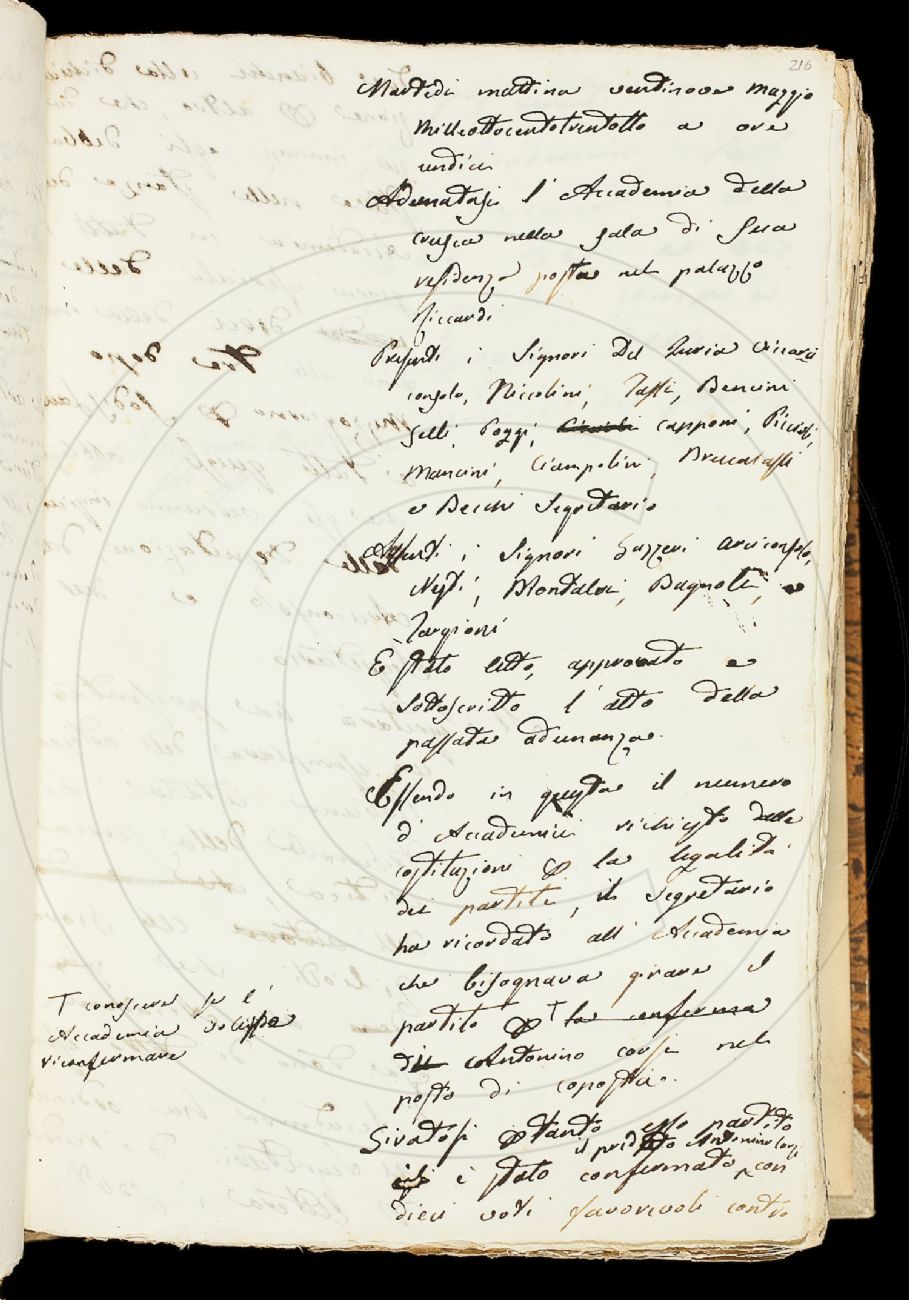 216
Martedì mattina ventinove Maggio
Milleottocentotrentotto a ore
undici
Adunatasi l'Accademia della
crusca nella sala di Sua
residenza posta nel palazzo
Riccardi
Presenti i Signori Del Furia Vicearci
consolo, Niccolini, Tassi, Bencini
Gelli, Poggi, Capponi, Piccioli,
Mancini, Ciampolini, Brucalassi
e Becchi Segretario
Assenti i Signori Gazzeri arciconsolo,
Nesti, Montalvi, Bagnoli, e
Targioni
È stato letto, approvato e
sottoscritto l'atto della
passata adunanza.
Essendo in questa il numero
d'Accademici richiesto dalle
costituzioni per la legalità
dei partiti, il Segretario
ha ricordato all'Accademia
che bisognava girare il
partito per T la conferma
di Antonino corsi nel
posto di copista.
T conoscere se l'
Accademia volesse
riconfermare
Giratosi pertanto esso partito
il predetto Antonino Corsi
è stato confermato con
dieci voti favorevoli contro